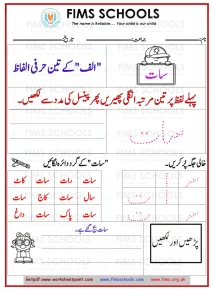 FIMS SCHOOLS
The name is Reliable.... Your child is our child
نام: جماعت: تاریخ:
"الف" کے تین حرفی الفاظ
سات
پہلے لفظ پر تین مرتبہ انگلی پھیریں پھر پینسل کی مدد سے لکھیں۔
سات
"سات" کے گرد دائرہ لگائیں
خالی جگہ پُر کریں۔
سات رات سات کاٹ
سال سات کاج سات
سات پاک سات داغ
پڑھیں اور لکھیں
www.fimsschools.com
www.fims.org.pk